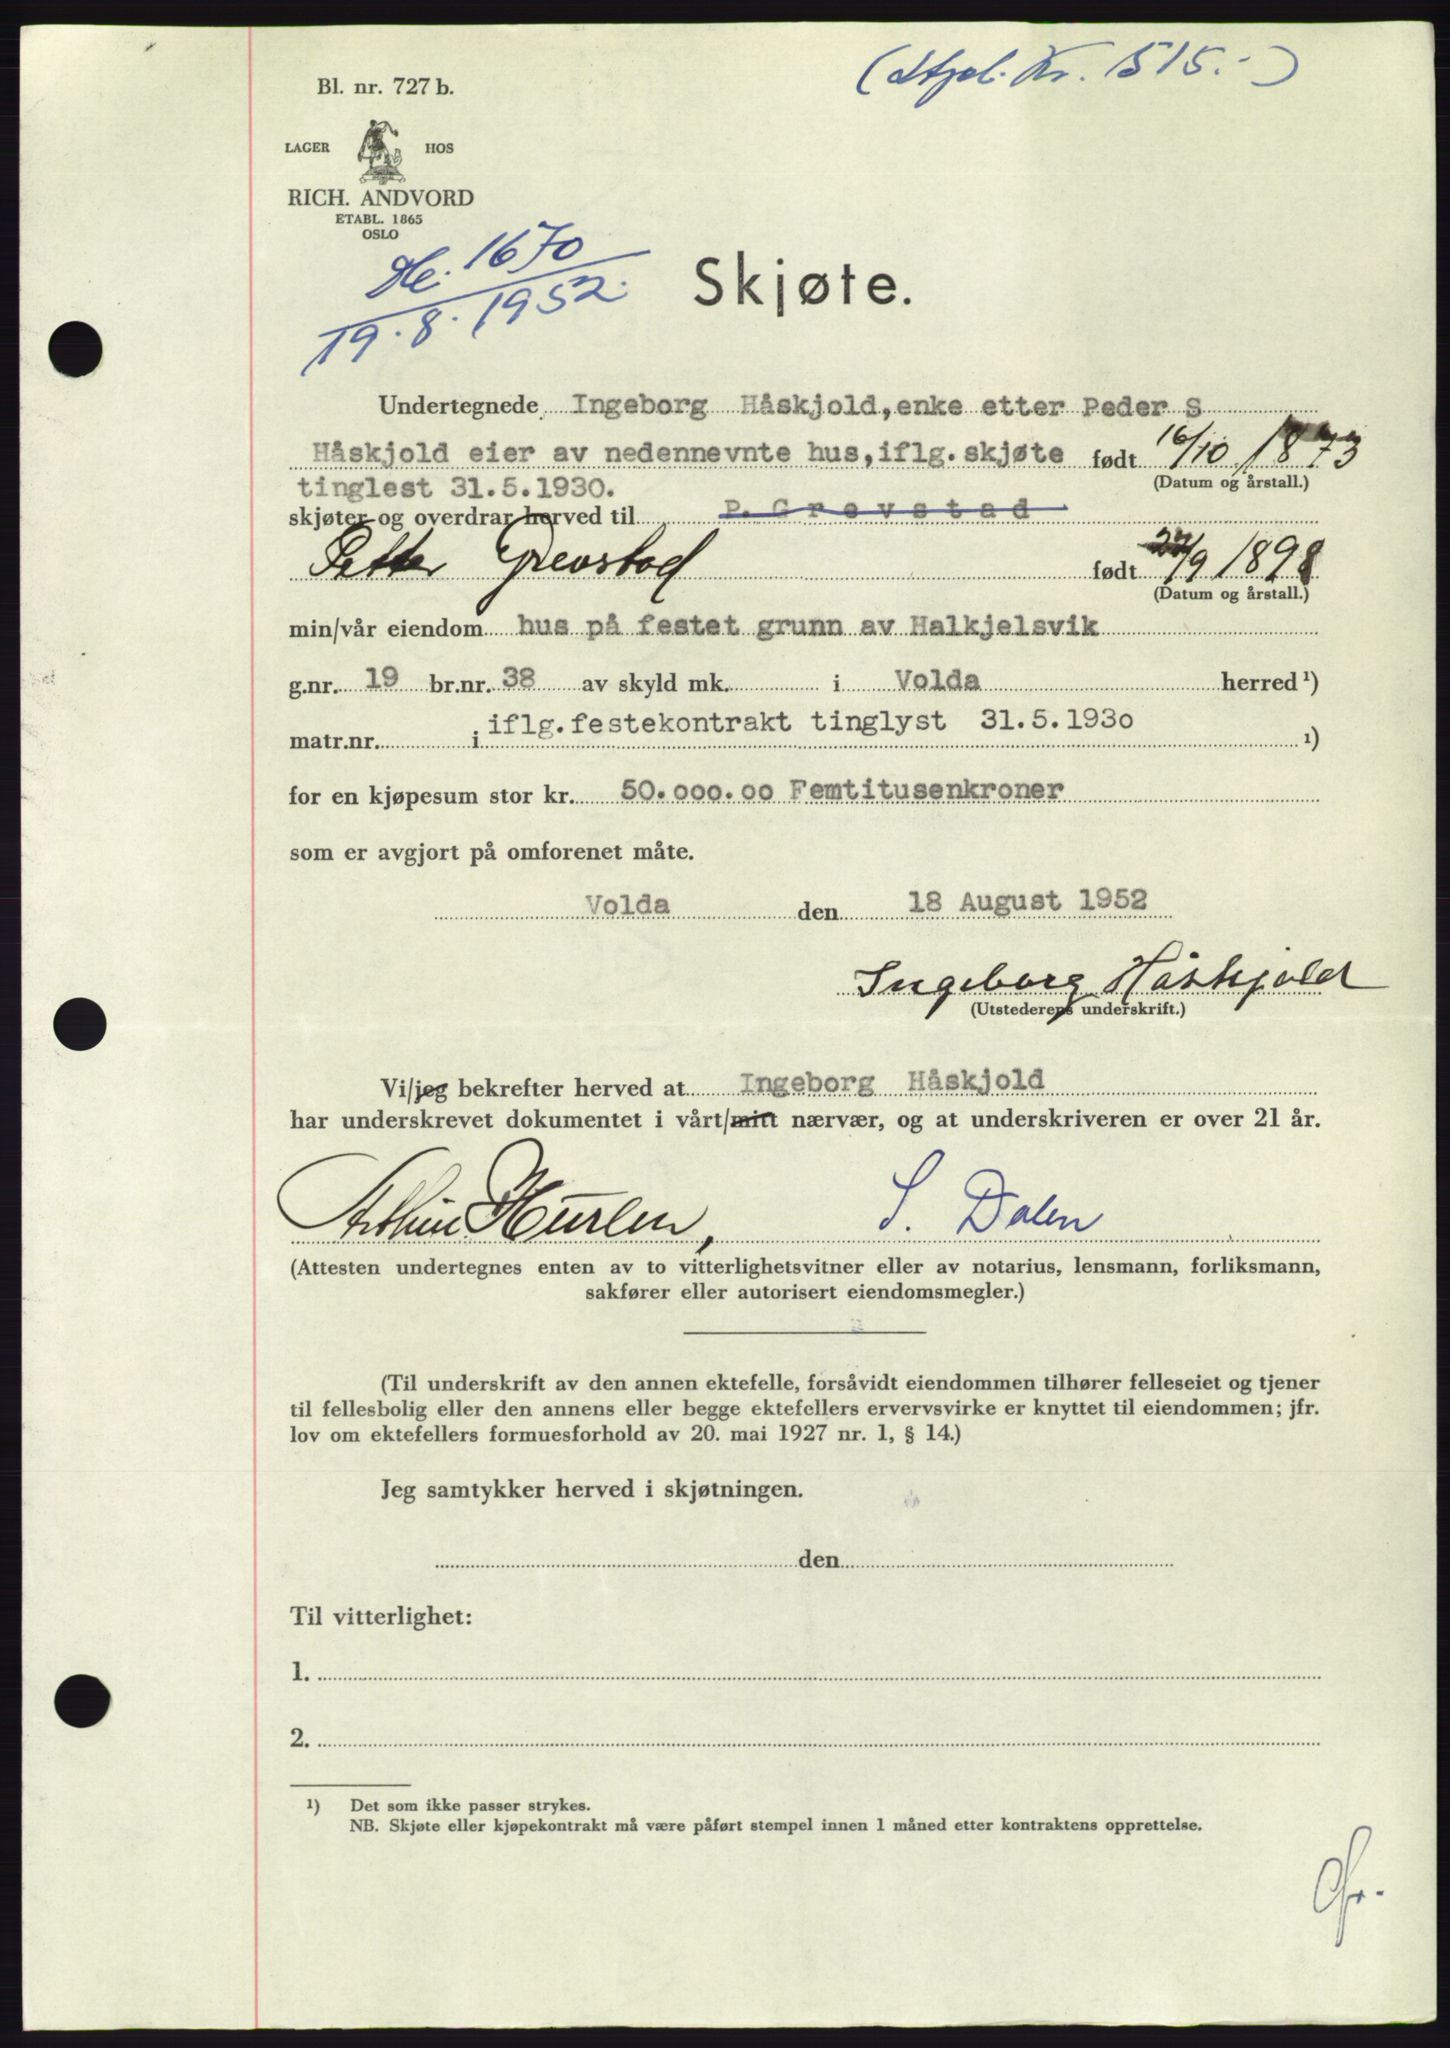 (Stpl. Kr. 515.-)
Bl. nr. 727 b.
LAGER HOS
RICH. ANDVORD
ETABL. 1865
OSLO
1670
19.8.1952.
Skjøte.
Undertegnede Ingeborg Håskjold, enke etter Peder S
Håskjold eier av nedennevnte hus, iflg. skjøte født 16/10 1873
tinglest 31.5.1930. (Datum og årstall.)
skjøter og overdrar herved til P. Grevstad
Petter Grevstad født /9 1898
(Datum og årstall.)
min/vår eiendom hus på festet grunn av Halkjelsvik
g.nr. 19 br.nr. 38 av skyld mk. i Volda herred ¹)
matr.nr. i iflg. festekontrakt tinglyst 31.5.1930 ¹)
for en kjøpesum stor kr. 50.000.00 Femtitusenkroner
som er avgjort på omforenet måte.
Volda den 18 August 1952
Ingeborg Håskjold
(Utstederens underskrift.)
Vi/jeg bekrefter herved at Ingeborg Håskjold
har underskrevet dokumentet i vårt/mitt nærvær, og at underskriveren er over 21 år.
Arthur Hurlen, S. Dalen
(Attesten undertegnes enten av to vitterlighetsvitner eller av notarius, lensmann, forliksmann,
sakfører eller autorisert eiendomsmegler.)
(Til underskrift av den annen ektefelle, forsåvidt eiendommen tilhører felleseiet og tjener
til fellesbolig eller den annens eller begge ektefellers ervervsvirke er knyttet til eiendommen; jfr.
lov om ektefellers formuesforhold av 20. mai 1927 nr. 1, § 14.)
Jeg samtykker herved i skjøtningen.
den
Til vitterlighet:
1.
2.
¹) Det som ikke passer strykes.
NB. Skjøte eller kjøpekontrakt må være påført stempel innen 1 måned etter kontraktens opprettelse.